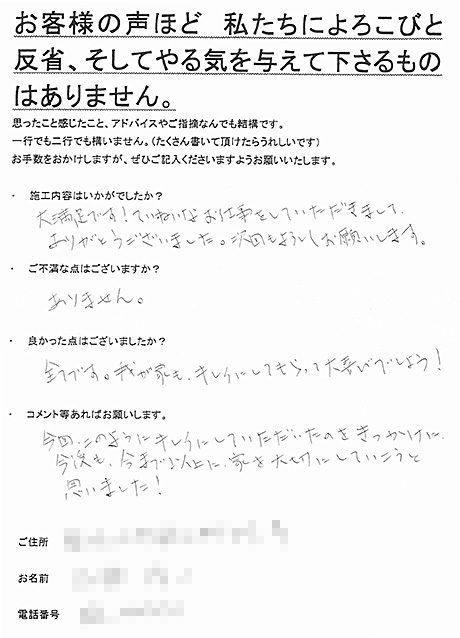 お客様の声ほど　私たちによろこびと
反省、そしてやる気を与えて下さるもの
はありません。
思ったこと感じたこと、アドバイスやご指摘なんでも結構です。
一行でも二行でも構いません。（たくさん書いて頂けたらうれしいです）
お手数をおかけしますが、ぜひご記入くださいますようお願いいたします。
・　施工内容はいかがでしたか？
大満足です！ていねいなお仕事をしていただきまして、
ありがとうございました。次回もよろしくお願いします。
・　ご不満な点はございますか？
ありません。
・　良かった点はございましたか？
全てです。我が家も、キレイにしてもらって大喜びでしょう！
・　コメント等あればお願いします。
今回、このようにキレイにしていただいたのをきっかけに、
今後も、今まで以上に、家を大切にしていこうと
思いました！
ご住所
お名前
電話番号